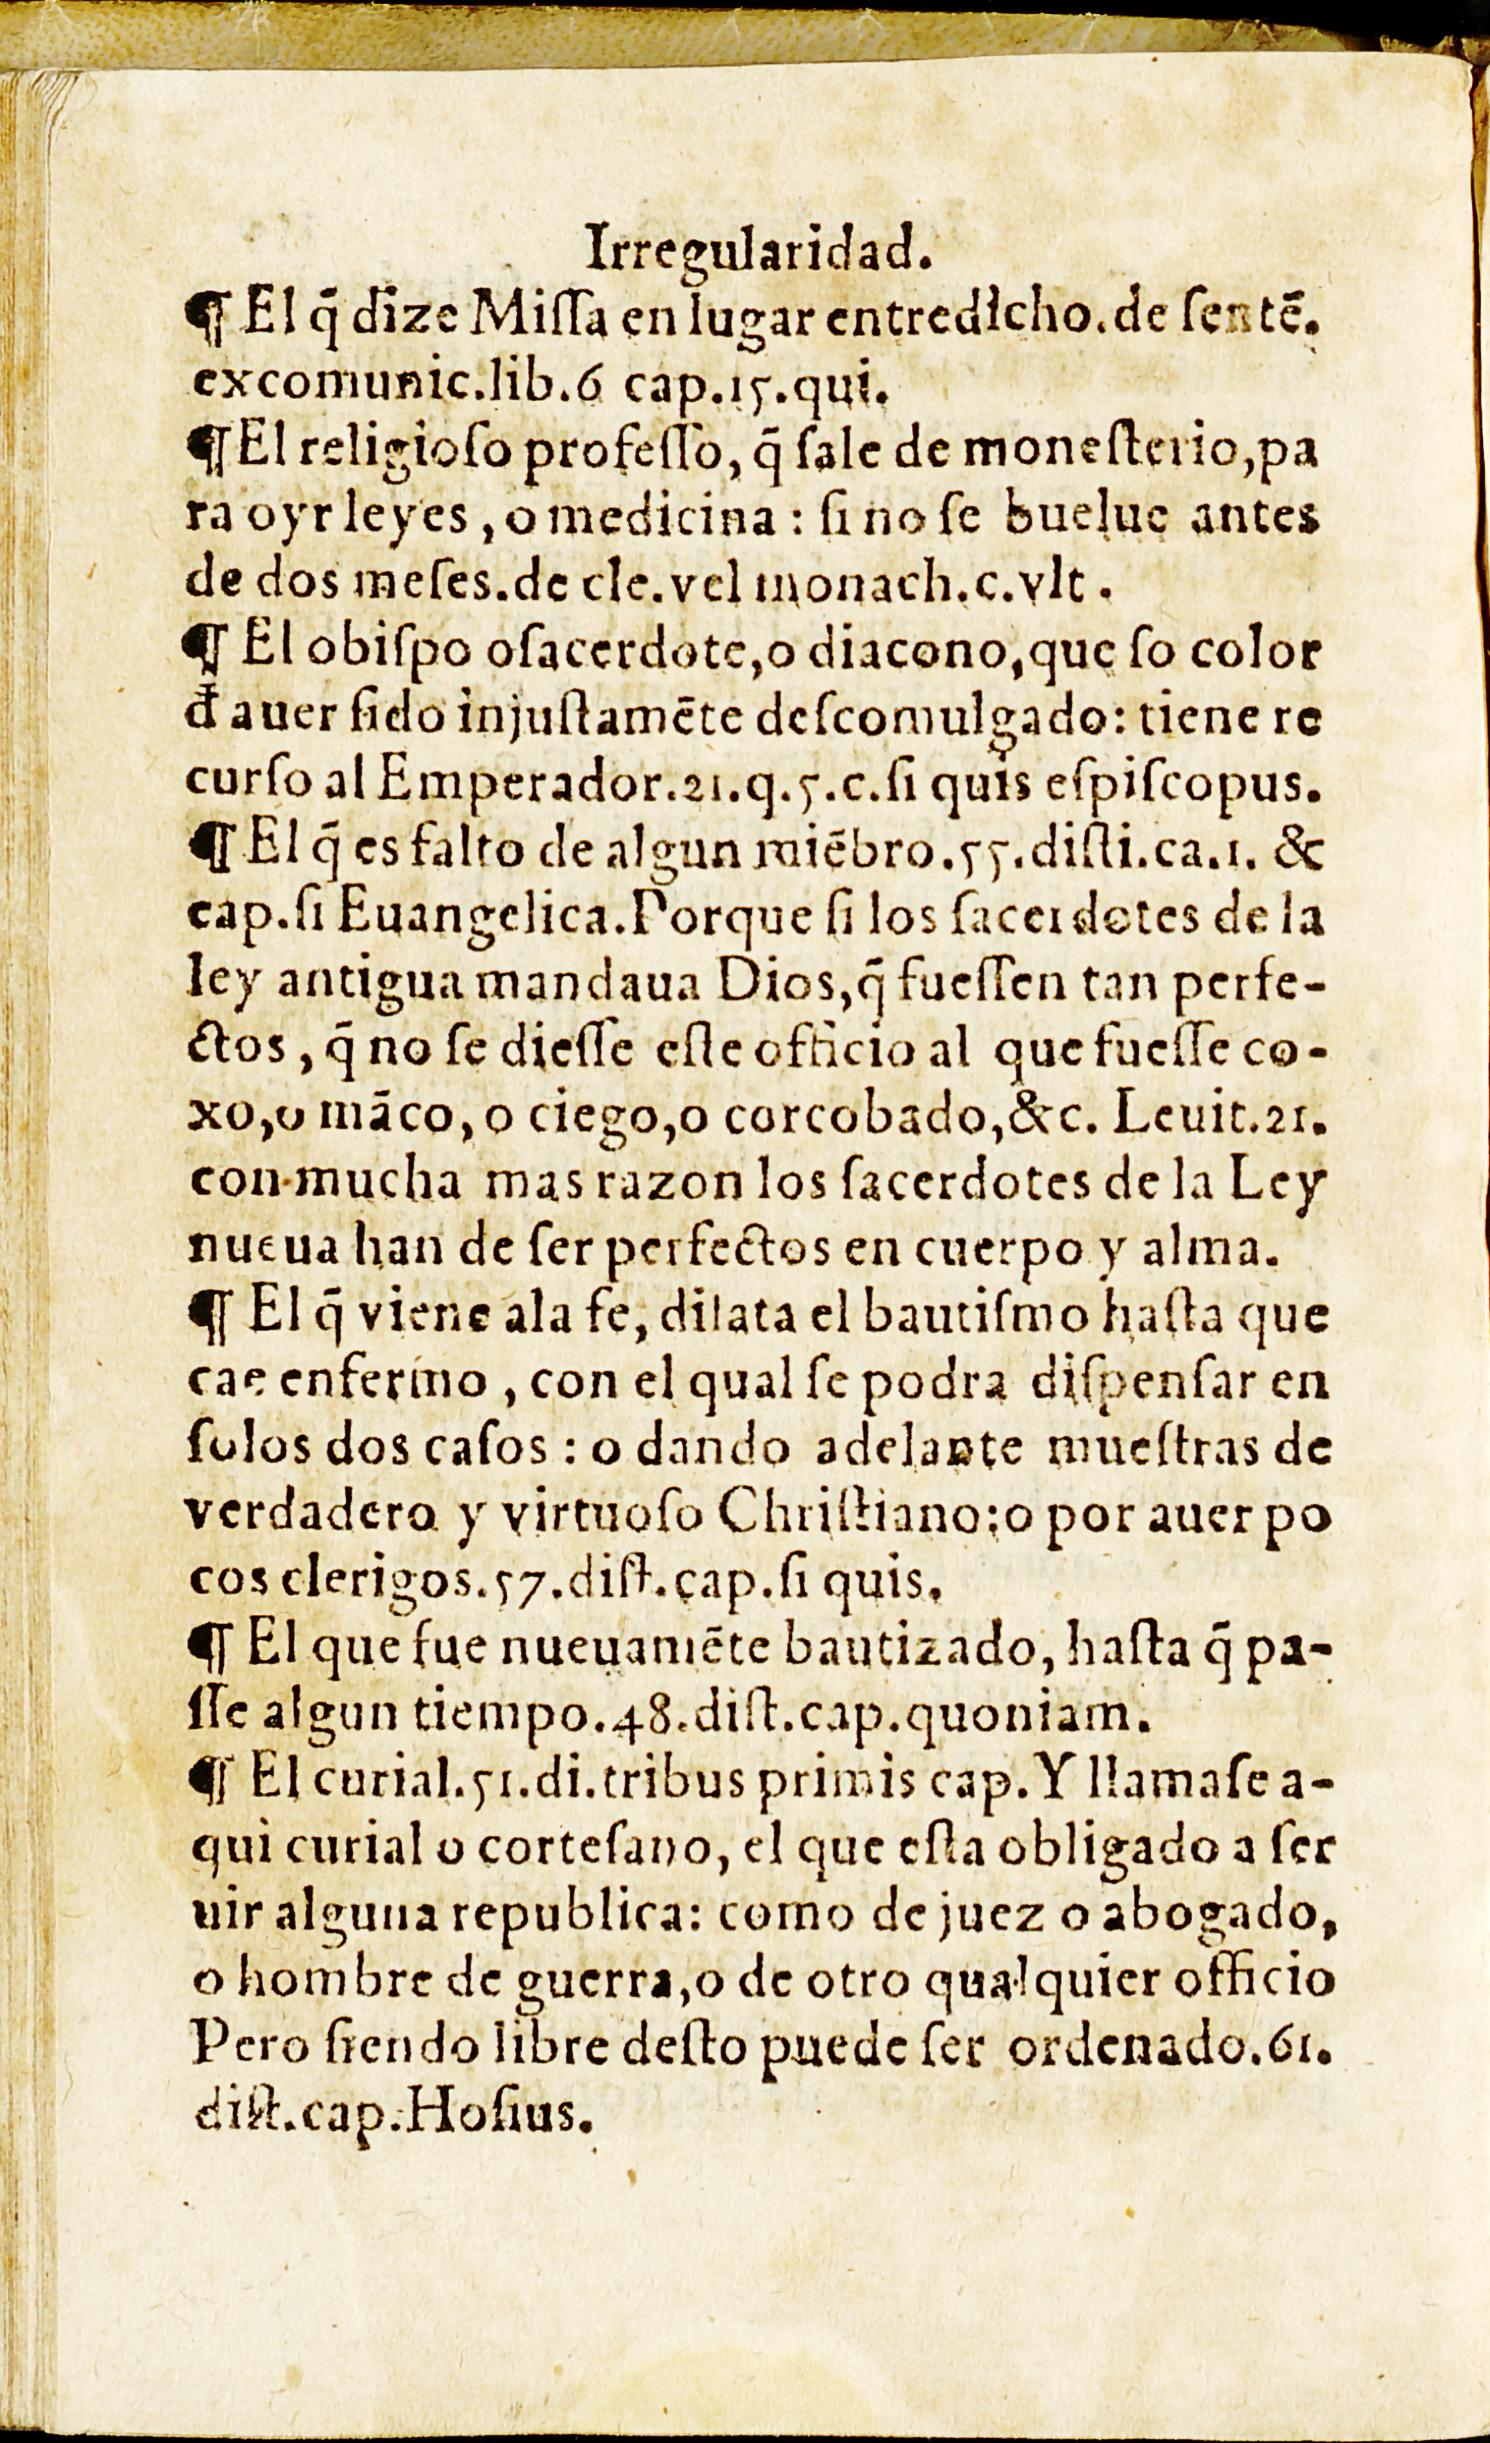 Irregularidad.
¶ El q̃ dize Miſſa en lugar entredicho.de ſentē.
excomunic.lib.6 cap.15.qui.
¶ El religioſo profeſſo, q̃ ſale de moneſterio,pa
ra oyr leyes, o medicina : ſi no ſe buelue antes
de dos meſes.de cle.vel monach.c.vlt.
¶ El obiſpo oſacerdote,o diacono,que ſo color
đ auer ſido injuſtamēte deſcomulgado: tiene re
curſo al Emperador.21.q.5.c.ſi quis eſpiſcopus.
¶ El q̃ es falto de algun miēbro.55.diſti.ca.1. &
cap.ſi Euangelica.Porque ſi los ſacerdotes de la
ley antigua mandaua Dios,q̃ fueſſen tan perfe-
ctos, q̃ no ſe dieſſe eſte officio al que fueſſe co-
xo,o māco, o ciego,o corcobado,&c. Leuit.21.
con mucha mas razon los ſacerdotes de la Ley
nueua han de ſer perfectos en cuerpo y alma.
¶ El q̃ viene ala fe, dilata el bautiſmo haſta que
cae enfermo, con el qual ſe podra diſpenſar en
ſolos dos caſos : o dando adelante mueſtras de
verdadero y virtuoſo Chriſtiano:o por auer po
cos clerigos.57.diſt.cap.ſi quis.
¶ El que fue nueuamēte bautizado, haſta q̃ pa-
ſſe algun tiempo.48.diſt.cap.quoniam.
¶ El curial.51.di.tribus primis cap.Y llamaſe a-
qui curial o corteſano, el que eſta obligado a ſer
uir alguna republica: como de juez o abogado,
o hombre de guerra,o de otro qualquier officio
Pero ſiendo libre deſto puede ſer ordenado.61.
diſt.cap.Hoſius.